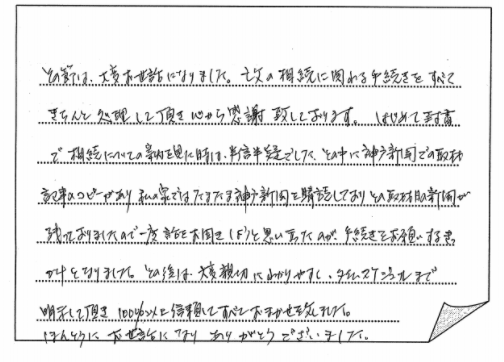 その節は、大変お世話になりました。亡父の相続に関わる手続きをすべて
きちんと処理して頂き心から感謝致しております。はじめて封書
で相続についての案内を見た時は、半信半疑でした、その中に神戸新聞での取材
記事のコピーがあり、私の家ではたまたま神戸新聞を購読しておりその取材日の新聞が
残っておりましたので一度話をお聞き(す)と思い立ったのが手続きをお願いする
かけとなりました。その後は、大変親切にわかりやすく、タイムスケジュールまで
明示して頂き100%以上信頼してすべておまかせ致しました。
ほんとうにお世話になりありがとうございました。